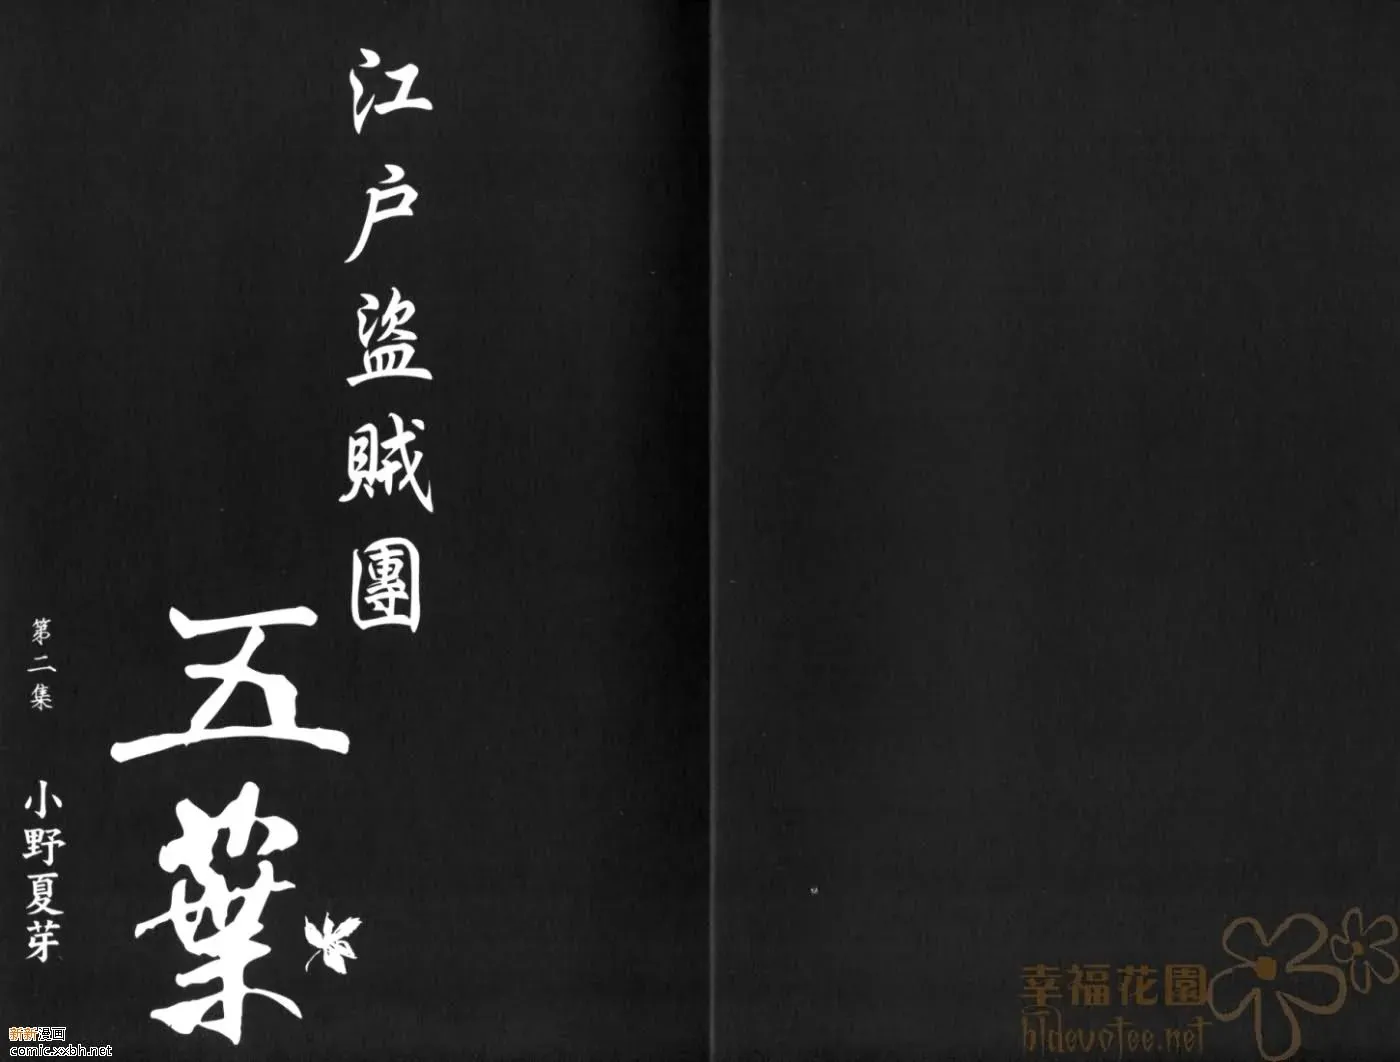 江戶盜賊團
五葉
第二集
小野夏芽
新新漫画
comic.xxbh.net
幸福花園
bldevotee.net